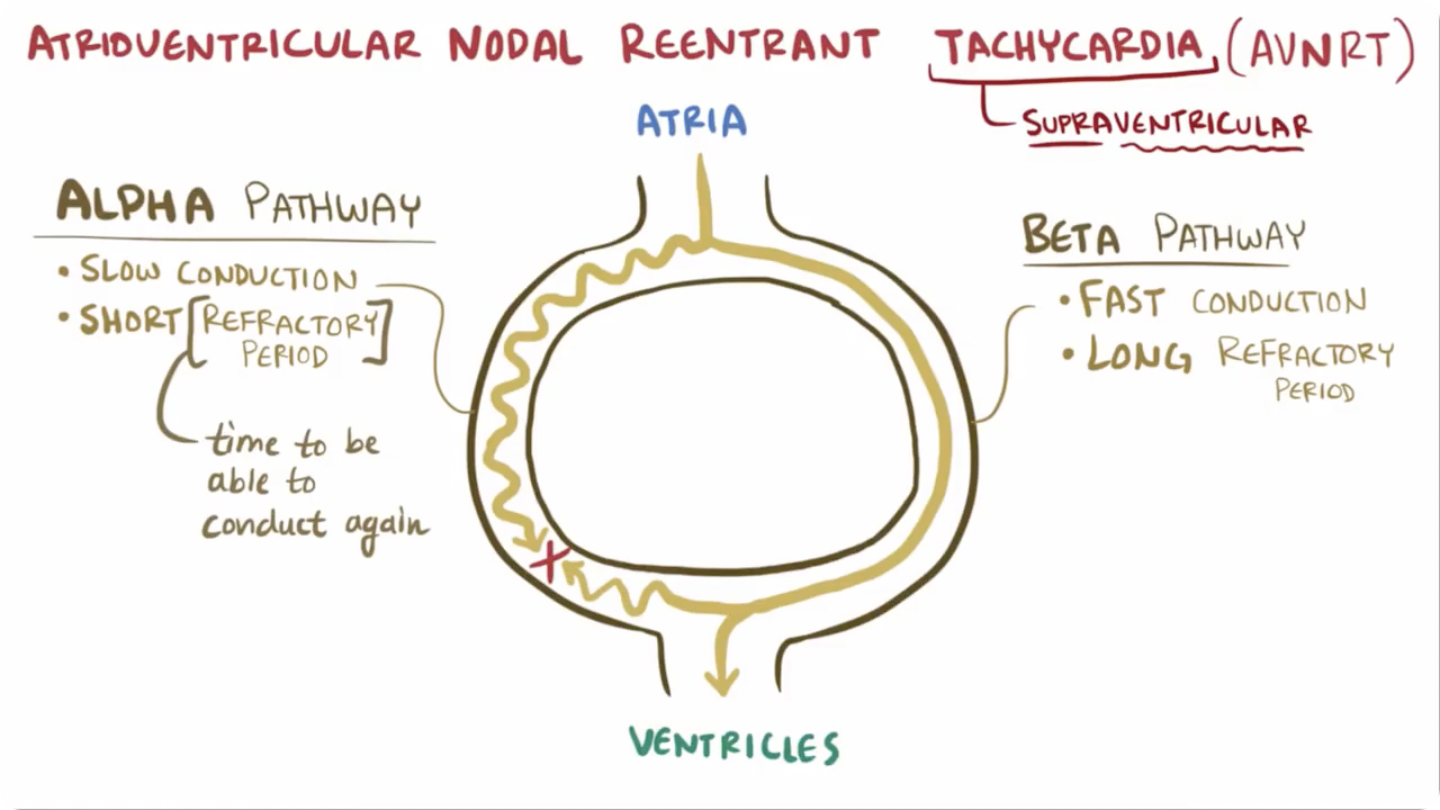 ATRIOVENTRICULAR NODAL REENTRANT TACHYCARDIA (AVNRT)
SUPRAVENTRICULAR
ATRIA
ALPHA PATHWAY
• SLOW CONDUCTION
• SHORT [REFRACTORY
PERIOD]
time to be
able to
conduct again
BETA PATHWAY
• FAST CONDUCTION
• LONG REFRACTORY
PERIOD
VENTRICLES